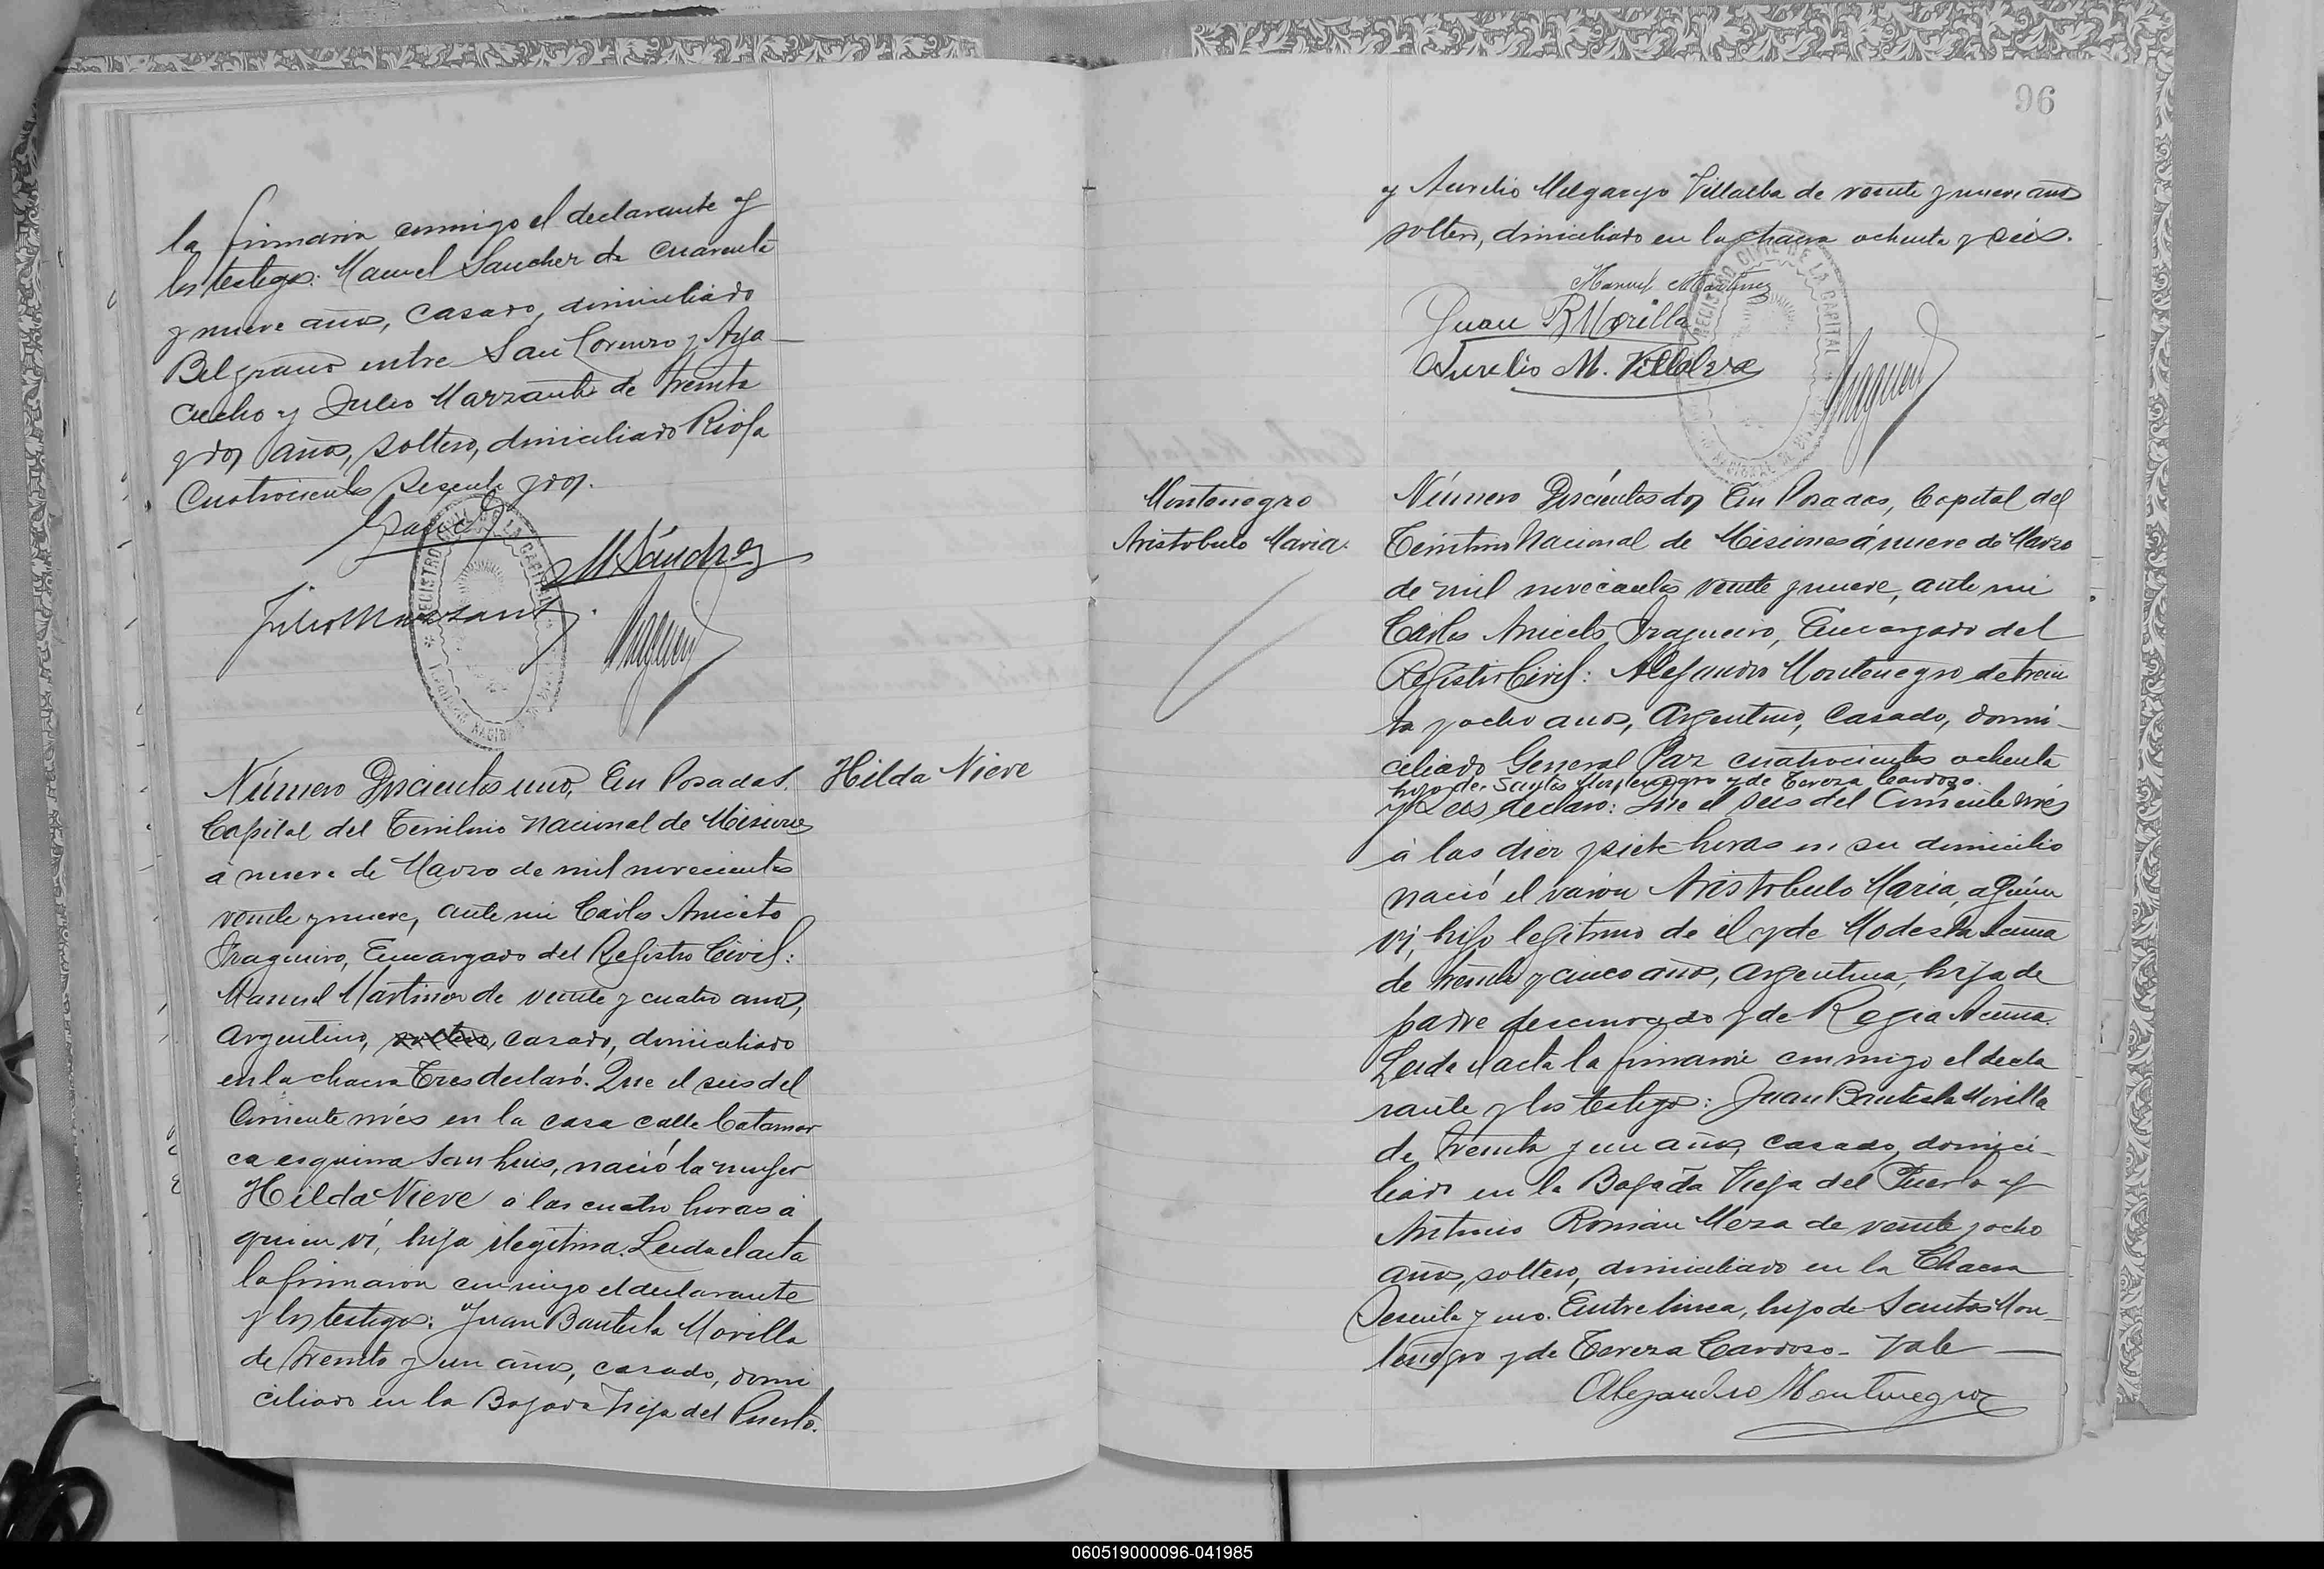 la firmaron conmigo el declarante y
los testigos: Manuel Sanchez de cuarenta
y nueve años, casado, domiciliado
Belgrano entre San Lorenzo y Aya-
cucho y Julio Marzante de treinta
y dos años, soltero, domiciliado Rioja
Cuatrocientos sesenta y dos.
M Sánchez
Julio Marzante
REGISTRO CIVIL DE LA CAPITAL
Número Doscientos uno, En Posadas,
Capital del Territorio Nacional de Misiones
a nueve de Marzo de mil novecientos
veinte y nueve, ante mi Carlos Aniceto
Fragueiro, Encargado del Registro Civil:
Manuel Martinez de veinte y cuatro años,
argentino, soltero, casado, domiciliado
en la chacra Tres declaró: Que el seis del
corriente mes en la casa calle Catamar
ca esquina San Luis, nació la mujer
Hilda Nieve a las cuatro horas a
quien ví, hija ilegitima. Leida el acta
la firmaron conmigo el declarante
y los testigos: Juan Bautista Morilla
de treinta y un años, casado, domi
ciliado en la Bajada Vieja del Puerto.
Hilda Nieve
96
y Aurelio Melgarejo Villalba de veinte y nueve años
soltero, domiciliado en la chacra ochenta y seis.
Manuel Martinez
Juan B Morilla
Aurelio M. Villalva
REGISTRO CIVIL DE LA CAPITAL
Montenegro
Aristobulo Maria.
Número Doscientos dos En Posadas, Capital del
Territorio Nacional de Misiones á nueve de Marzo
de mil novecientos veinte y nueve, ante mi
Carlos Aniceto Fragueiro, Encargado del
Registro Civil: Alejandro Montenegro de trein
ta y ocho años, Argentino, Casado, domi-
ciliado General Paz cuatrocientos ochenta
hijo de Santos Montenegro y de Tereza Cardozo.
y declaro: Que el seis del Corriente mes
á las diez y siete horas en su domicilio
nació el varon Aristobulo Maria, a quien
ví, hijo legitimo de el y de Modesta Acuña
de treinta y cinco años, argentina, hija de
padre desconocido y de Regia Acuña.
Leida el acta la firmaron conmigo el decla
rante y los testigos: Juan Bautista Morilla
de treinta y un años, casado, domici-
liado en la Bajada Vieja del Puerto y
Antonio Román Meza de veinte y ocho
años, soltero, domiciliado en la Chacra
Sesenta y uno. Entre linea, hijo de Santos Mon-
tenegro y de Tereza Cardozo - Vale —
Alejandro Montenegro
060519000096-041985